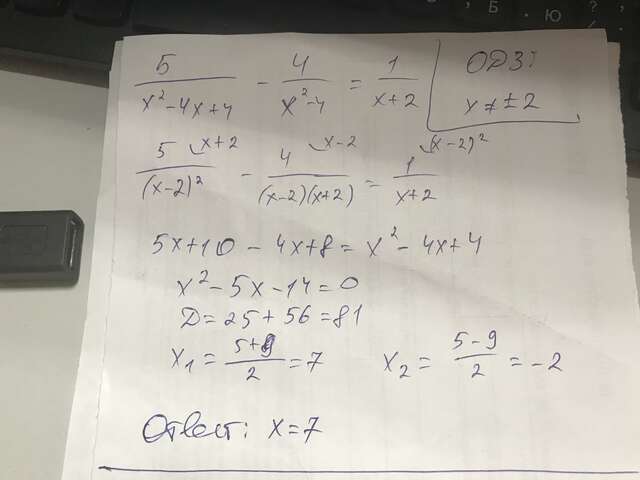 5/(x²-4x+4) - 4/(x²-4) = 1/(x+2) ОДЗ: x≠±2
5/(x-2)² (x+2 - 4/((x-2)(x+2)) (x-2 = 1/(x+2) (x-2)²
5x+10-4x+8=x²-4x+4
x²-5x-14=0
D=25+56=81
x₁=(5+9)/2=7 x₂=(5-9)/2=-2
Ответ: x=7